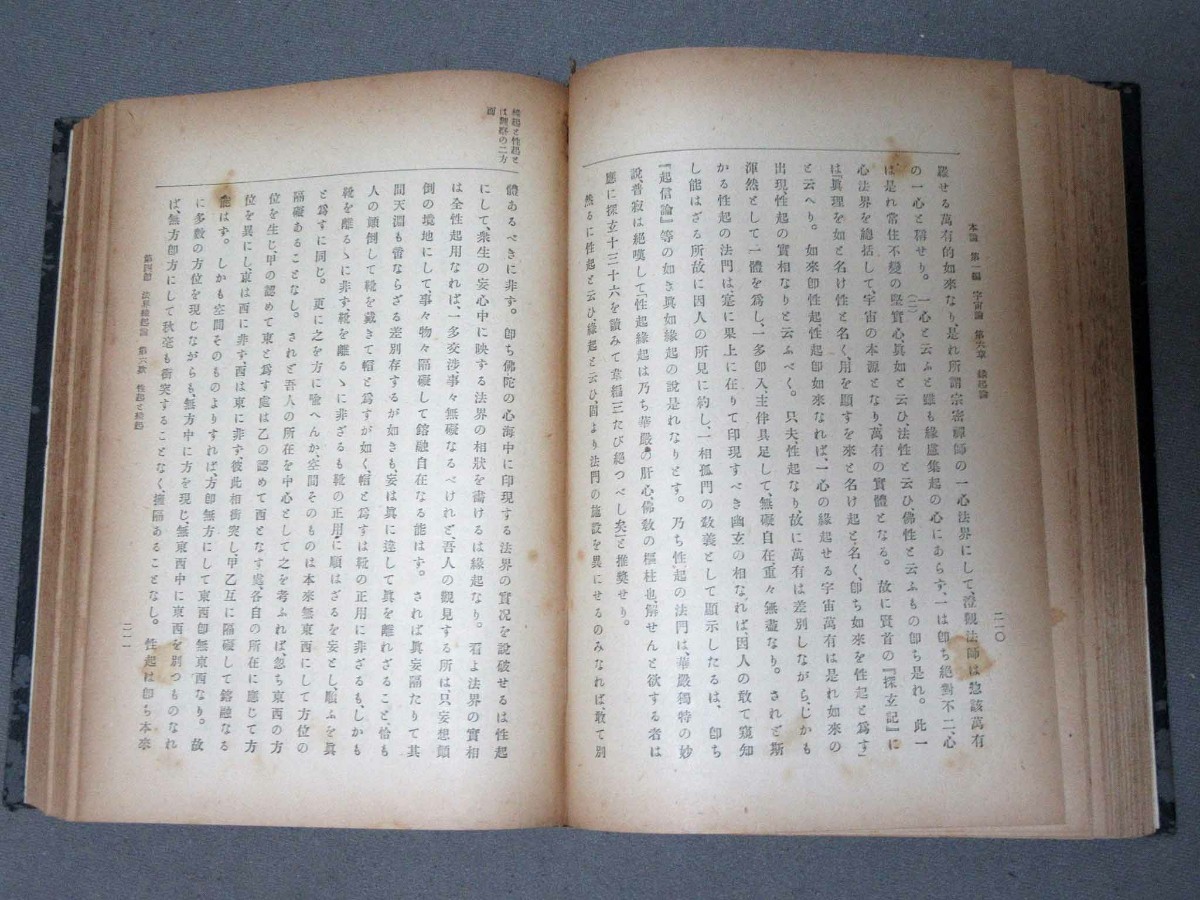 二一〇
本論 第一編 宇宙論 第六章 緣起論
羅せる萬有的如來なり、是れ所謂宗密禪師の一心法界にして、澄觀法師は惣該萬有
の一心と釋せり。(二)一心と云ふと雖も緣慮集起の心にあらず、一は卽ち絕對不二、心
は是れ常住不變の堅實心眞如と云ひ、法性と云ひ佛性と云ふもの卽ち是れ。此一
心法界を總括して、宇宙の本源となり、萬有の實體となる。故に賢首の『探玄記』に
は『眞理を如と名け性と名く、用を顯すを來と名け起と名く、卽ち如來を性起と爲す』
と云へり。如來卽性起、性起卽如來なれば、一心の緣起せる宇宙萬有は是れ如來の
出現、性起の實相なりと云ふべく。只夫、性起なり、故に萬有は差別しながら、しかも
渾然として一體を爲し、一多卽入主伴具足して、無礙自在、重々無盡なり。されど斯
かる性起の法門は、毫に果上に在りて印現すべき幽玄の相なれば、因人の敢て窺知
し能はざる所、故に因人の所見に約し、一相孤門の敎義として顯示したるは、卽ち
『起信論』等の如き眞如緣起の說是れなりとす。乃ち性起の法門は、華嚴獨特の妙
說、普寂は絕嘆して「性起緣起は乃ち華嚴の肝心、佛敎の樞柱也、解せんと欲する者は
應に探立十三十六を讀みて韋編三たび絕つべし矣」と推奬せり。
然るに性起と云ひ、緣起と云ひ、固より法門の施設を異にせるのみなれば、敢て別
緣起と性起と
は觀察の二方
面
體あるべきに非す。卽ち佛陀の心海中に印現する法界の實況を說破せるは性起
にして、衆生の妄心中に映する法界の相狀を譸けるは緣起なり。看よ法界の實相
は全性起用なれば、一多交涉事々無礙なるべけれど、吾人の觀見する所は、只、妄想顚
倒の境地にして、事々物々隔礙して鎔融自在なる能はす。されば眞妄隔たりて其
間天淵も啻ならざる差別存するが如きも、妄は眞に達して眞を離れざること、恰も
人の顚倒して靴を戴きて帽と爲すが如く、帽と爲すは靴の正用に非ざるも、しかも
靴を離るゝに非す、靴を離るゝに非ざるも靴の正用に順はざるを妄とし、順ふを眞
と爲すに同じ。更に之を方に喩へんか、空間そのものは本來無東西にして方位の
隔礙あることなし。されど吾人の所在を中心として之を考ふれば、忽ち東西の方
位を生じ甲の認めて東と爲す處は乙の認めて西となす處、各自の所在に應じて方
位を異にし、東は西に非す、西は東に非す、彼此相衝突し、甲乙互に隔礙して鎔融なる
能はす。しかも空間そのものよりすれば、方卽無方にして東西卽無東西なり。故
に多數の方位を現じながらも、無方中に方を現じ、無東西中に東西を別つものなれ
ば、無方卽方にして秋毫も衝突することなく、擁隔あることなし。性起は卽ち本來
第四節 法界緣起論 第六款 性起と緣起
二一一